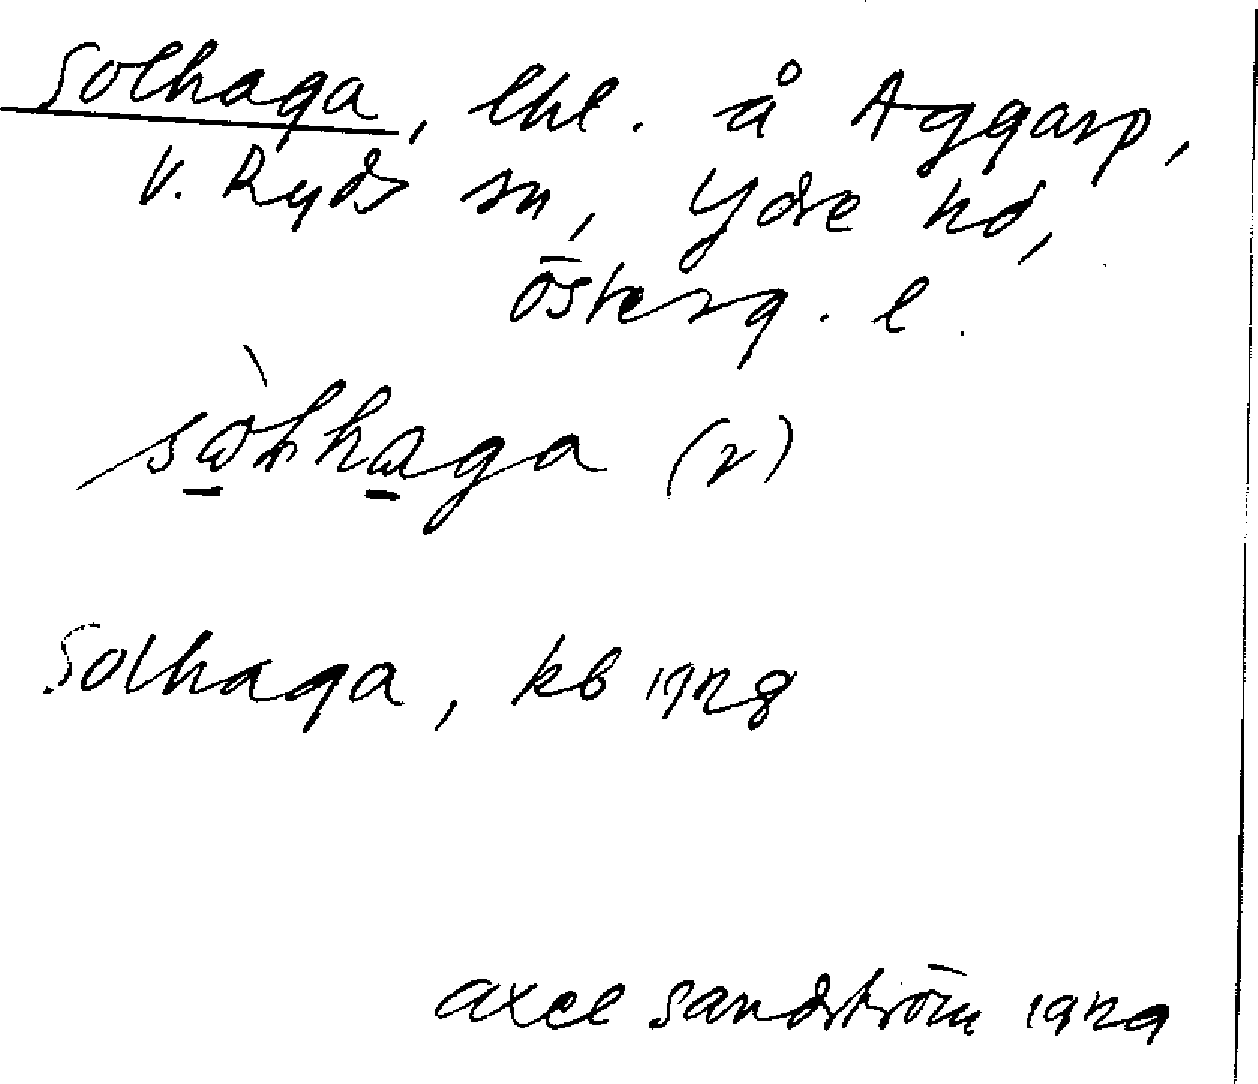 Solhaga, lht. å Aggarp,
V. Ryds sn, Ydre hd,
Österg. l.
(r)
Solhaga, kb 1928
Axel Sandström 1929